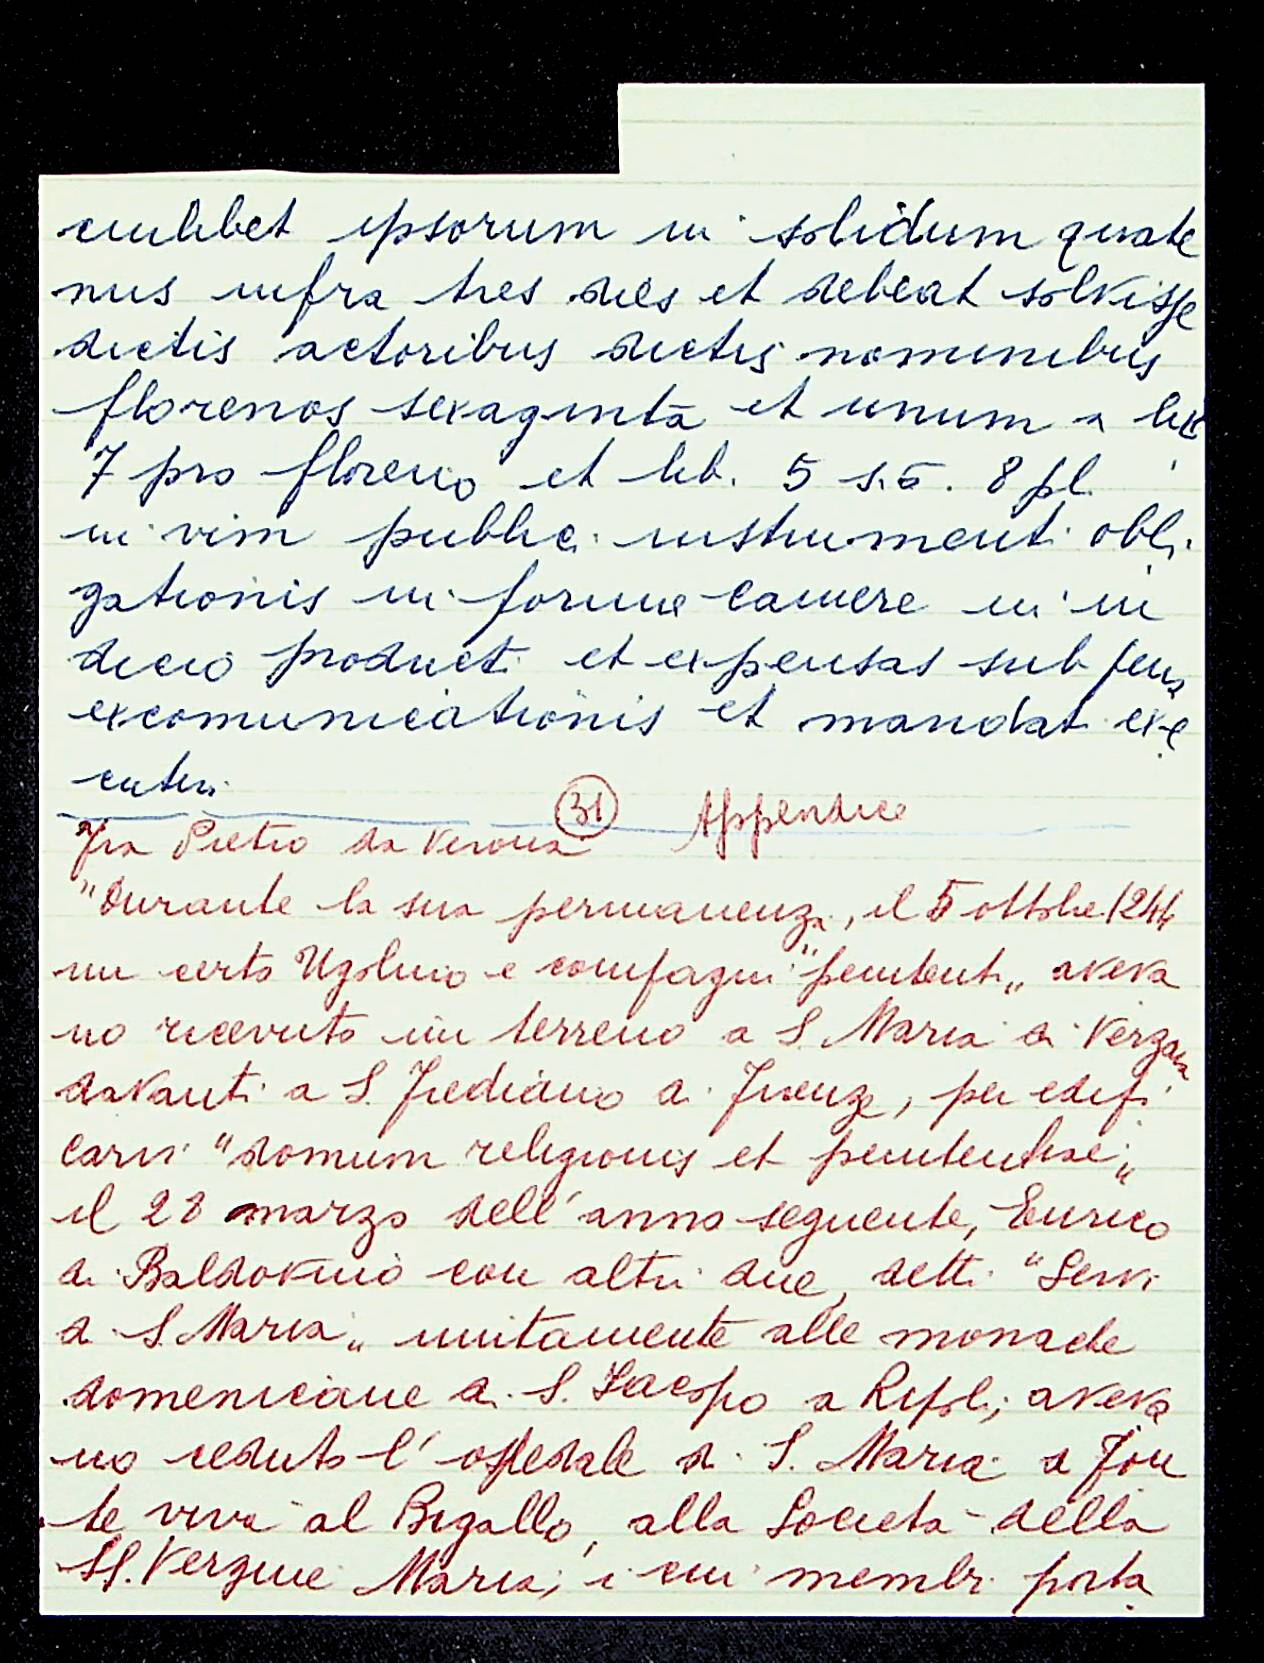 cuilibet ipsorum in solidum quate
nus infra tres dies et debeat solvisse
dictis actoribus dictis nominibus
florenos sexaginta et unum a lib
7 pro floreno et lib. 5 s. 8 pl.
in vim publici instrumenti obli
gationis in forme camere in iu
dicio producti et expensas sub pena
excomunicationis et mandat exe
cutur.
31 Appendice
Fra Pietro da Verona
"Durante la sua permanenza, il 5 ottobre 1244
un certo Ugolino e compagni "penitenti" aveva
no ricevuto un terreno a S. Maria di Verzaia
davanti a S. Frediano di Firenze, per edifi
carvi "domum religionis et penitentiae"
il 28 marzo dell'anno seguente, Enrico
di Baldovino con altri due, detti "Servi
di S. Maria" unitamente alle monache
domenicane di S. Iacopo a Ripoli, aveva
no ceduto l'ospedale di S. Maria a Fon
te viva al Bigallo, alla Società della
SS. Vergine Maria, i cui membri porta